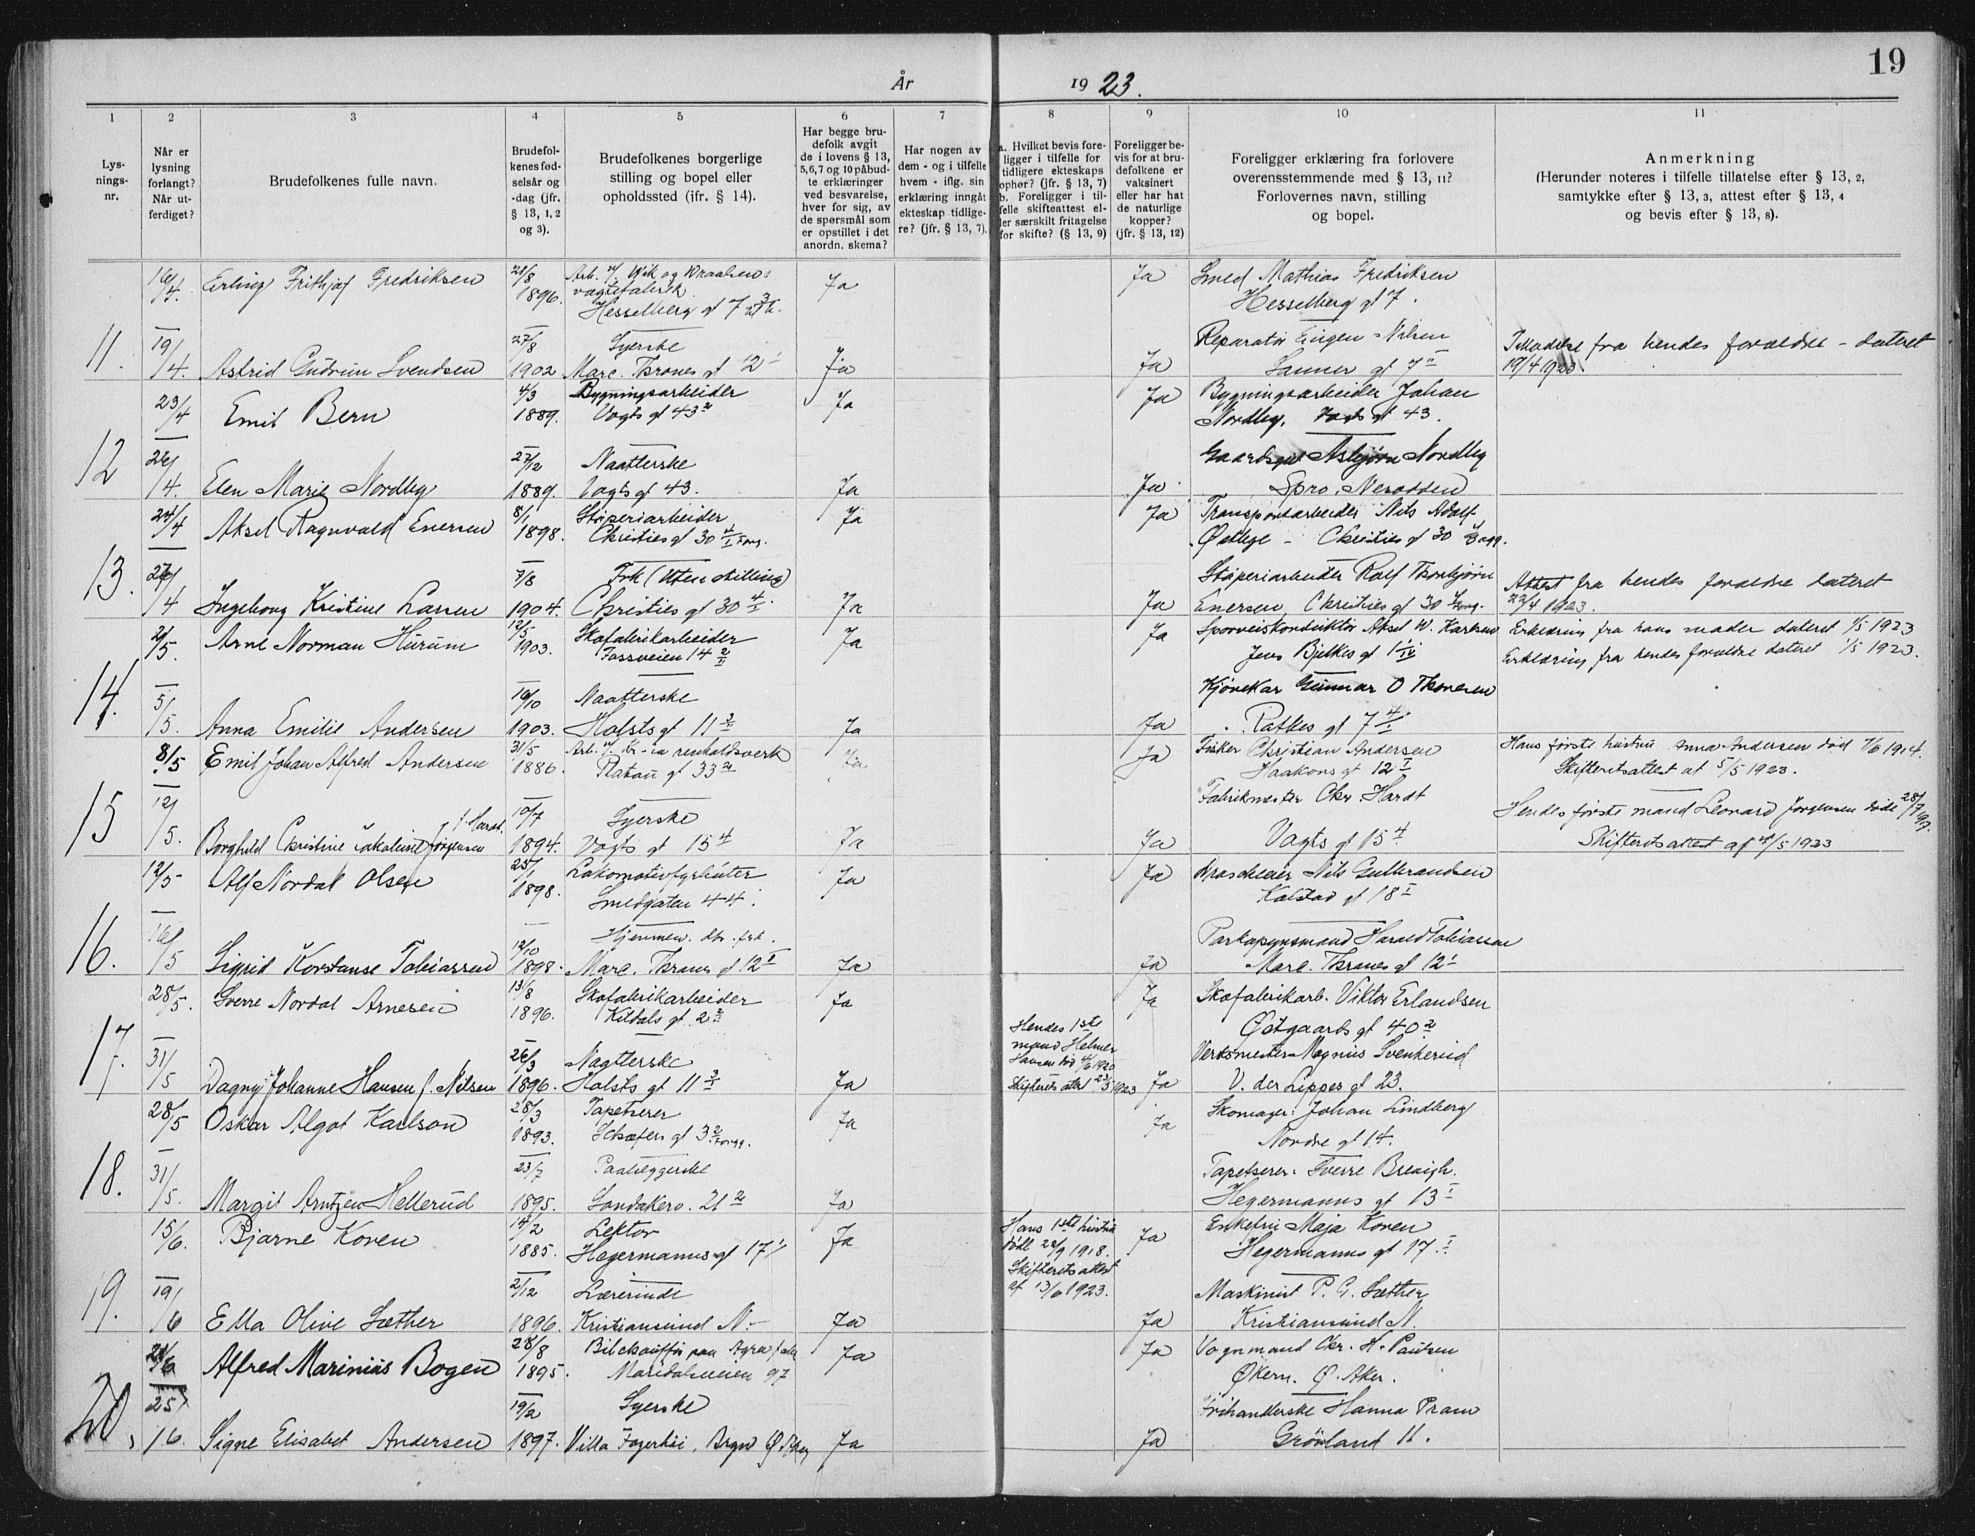 19
År 1923.
1 2 3 4 5 6 7 8 9 10 11
Lysnings-
nr.
Når er
lysning
forlangt?
Når ut-
ferdiget?
Brudefolkenes fulle navn.
Brudefol-
kenes fød-
selsår og
-dag (jfr.
§ 13, 1, 2
og 3).
Brudefolkenes borgerlige
stilling og bopel eller
opholdssted (jfr. § 14).
Har begge bru-
defolk avgit
de i lovens § 13,
5,6,7 og 10 påbud-
te erklæringer
ved besvarelse,
hver for sig, av
de spørsmål som
er opstillet i det
anordn. skema?
Har nogen av
dem - og i tilfelle
hvem - iflg. sin
erklæring inngåt
ekteskap tidlige-
re? (jfr. § 13, 7).
a. Hvilket bevis fore-
ligger i tilfelle for
tidligere ekteskaps
ophør? (jfr. § 13, 7)
b. Foreligger i til-
felle skifteattest el-
ler særskilt fritagelse
for skifte? (§ 13, 9)
Foreligger be-
vis for at bru-
defolkene er
vaksinert
eller har hat
de naturlige
kopper?
(jfr. § 13, 12)
Foreligger erklæring fra forlovere
overensstemmende med § 13, 11?
Forlovernes navn, stilling
og bopel.
Anmerkning
(Herunder noteres i tilfelle tillatelse efter § 13, 2,
samtykke efter § 13, 3, attest efter § 13, 4
og bevis efter § 13, 8).
16/4. Erling Frithjof Fredriksen 21/8 1896. Ja Ja Smed Mathias Fredriksen
Hesselberg gt 7 Hesselberg gt 7.
11. 19/4. Astrid Gudrun Svendsen 27/8 1902 Syerske Ja Ja Reparatør Eugen Nilsen
Marc. Thranes gt 12 Sanner gt 7 fra hendes forældre - dateret
19/4 1923
23/4 Emil Bern 4/3 1889. Bygningsarbeider Ja Ja Bygningsarbeider Johan
Vogts gt 43 Nordby. Vogts gt 43.
12 26/4. Elen Marie Nordby 27/12 1889. Naatterske Ja Ja Asbjørn Nordby
Vogts gt 43. Spro. Nesodden
24/4 Aksel Ragnvald Enersen 8/1 1898. Støperiarbeider Ja Ja Transportarbeider Nils Adolf
Christies gt 30 Østlye - Christies gt 30
13. 27/4 Ingeborg Kristine Larsen 7/8 1904. Frk (Uten stilling) Ja Ja Støperiarbeider Rolf Thorbjørn
Christies gt 30 Enersen, Christies gt 30 Attest fra hendes forældre dateret
23/4 1923.
2/5. Arne Norman Hurum 12/5 1903. Skofabrikarbeider Ja Ja Sporveiskonduktør Aksel W. Karlsen
Fossveien 14 Jens Bjelkes gt 1 Erklæring fra hans moder dateret 1/5 1923
Erklæring fra hendes forældre dateret 1/5 1923.
14. 5/5. Anna Emilie Andersen 19/10 1903. Naatterske Ja Ja Kjørekar Gunnar O Thoresen
Holsts gt 11 Ratkes gt 7
8/5 Emil Johan Alfred Andersen 31/5 1886. Arb. v. Kr-ia renholdsverk Ja Ja Fisker Christian Andersen
Ratkes gt 33 Haakons gt 12 Hans første hustru Anna Andersen død 7/6 1914.
Skifteretsattest af 5/5 1923.
15 12/5. Borghild Christine Jørgensen f. Hardt 10/7 1894. Syerske Ja Ja Fabrikmester Chr. Hardt
Vogts gt 15 Vogts gt 15 Hendes første mand Leonard Jørgensen døde 28/7 1917.
Skifteretsattest af 4/5 1923
12/5 Alf Nordal Olsen 25/1 1898. Lokomotivfyrbøter Ja Ja Nils Gulbrandsen
Smedgaten 44. Kalstad gt 18
16. 16/5 Sigrid Konstanse Tobiassen 12/10 1898. Hjemmev. dtr. frk. Ja Ja Harald Tobiassen
Marc. Thranes gt 12 Marc. Thranes gt 12
28/5. Sverre Nordal Arnesen 13/8 1896. Skofabrikarbeider Ja Ja Skofabrikarb. Viktor Erlandsen
Kildals gt. 2 Østgaards gt 40
17. 31/5 Dagny Johanne Hansen f. Nilsen 26/3 1896. Nagtlerske Ja Hendes 1ste
mand Helmer
Hansen død 4/6 1920
Skifterets attest 23/5 1923 Ja Verksmester Magnus Svenkerud
Holsts gt 11 V. der Lippes gt 23.
28/5 Oskar Algot Karlson 28/3 1893. Tapetserer Ja Ja Skomager Johan Lindberg
Schæfers gt 3 Nordre gt 14.
18. 31/5. Margit Arntzen Hellerud 23/7 1895. Paalæggerske Ja Tapetserer Sverre Breigh.
Sandakerv. 21 Hegermanns gt 13
15/6. Bjarne Koren 14/2 1885. Lektor Ja Hans 1ste hustru
død 22/9 1918.
Skifterets attest
af 13/6 1923. Ja Enkefru Maja Koren
Hegermanns gt 17 Hegermanns gt 17.
19. 19/6 Ella Olive Sæther 2/12 1896. Lærerinde Ja Ja Maskinist P. G. Sæther
Kristiansund N.- Kristiansund N.
21/6 Alfred Marinius Bogen 28/8 1895. Bilchauffør paa Agra fabr Ja Ja Vognmand Chr. H. Paulsen
Maridalsveien 97 Økern. Ø. Aker.
20, 25/6. Signe Elisabet Andersen 19/2 1897. Syerske Ja Ja Frihandlerske Hanna Pram
Villa Fagerhøi, Bryn Ø. Aker Grønland 11.